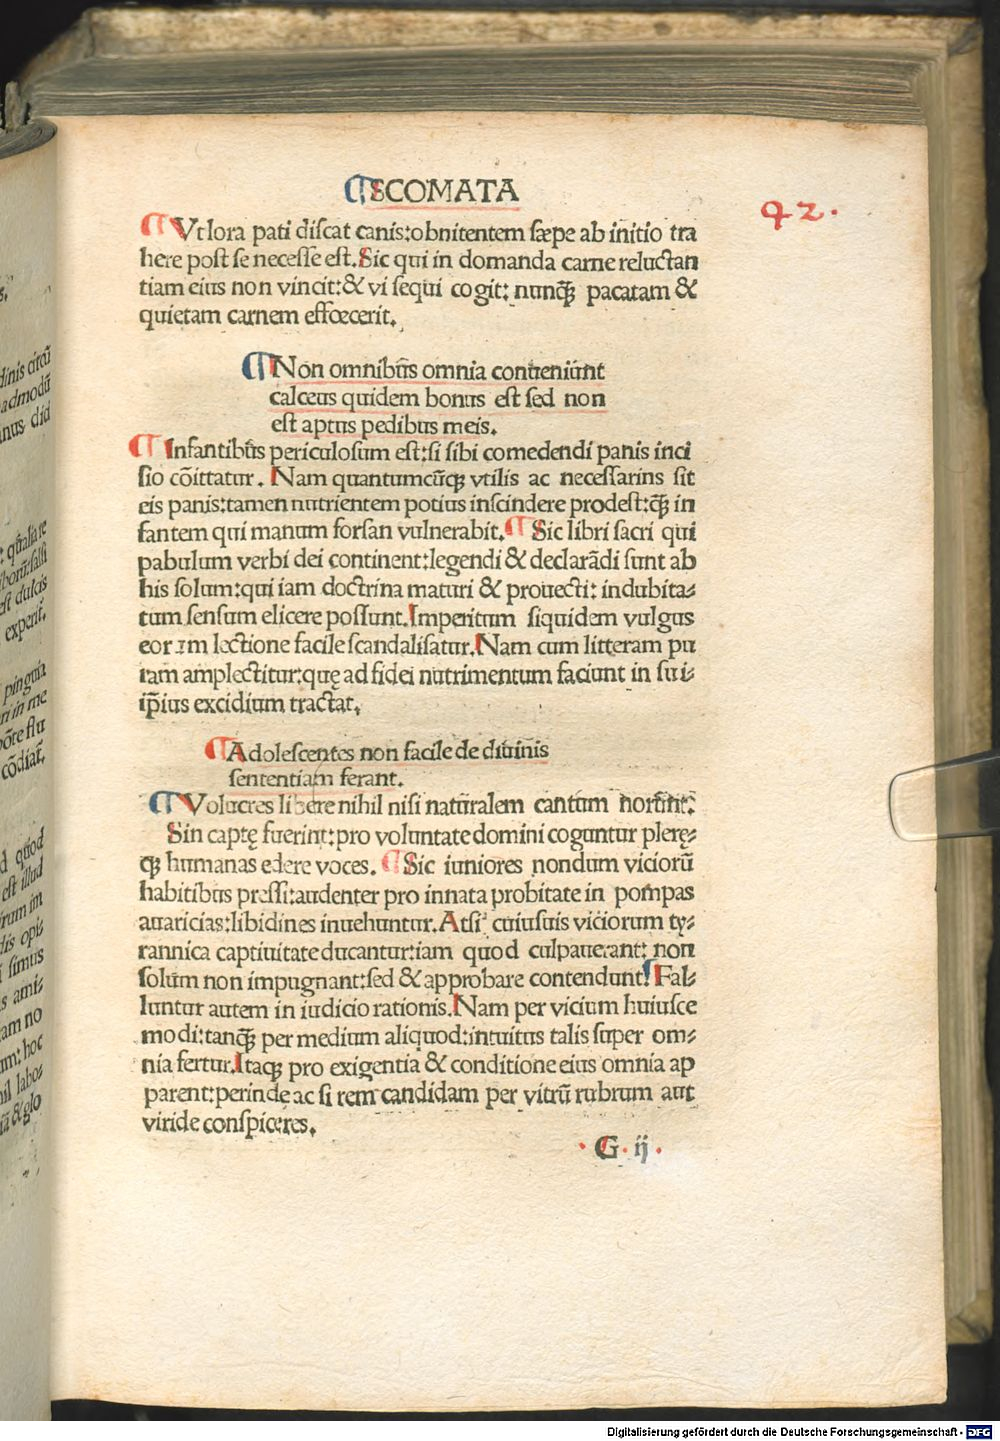 ¶ ECOMATA
42.
¶ Vt lora pati discat canis: obnitentem sæpe ab initio tra
here post se necesse est. Sic qui in domanda carne reluctan
tiam eius non vincit: & vi sequi cogit: nunq̄ pacatam &
quietam carnem effœcerit.
¶ Non omnibus omnia conueniunt
calceus quidem bonus est sed non
est aptus pedibus meis.
¶ Infantibus periculosum est: si sibi comedendi panis inci
sio cōittatur. Nam quantumcūq vtilis ac necessarius sit
eis panis: tamen nutrientem potius inscindere prodest: q̄ in
fantem qui manum forsan vulnerabit. ¶ Sic libri sacri qui
pabulum verbi dei continent: legendi & declarādi sunt ab
his solum: qui iam doctrina maturi & prouecti: indubita-
tum sensum elicere possunt. Imperitum siquidem vulgus
eorum lectione facile scandalisatur. Nam cum litteram pu
ram amplectitur: quę ad fidei nutrimentum faciunt in sui-
ip̄ius excidium tractat.
¶ Adolescentes non facile de diuinis
sententiam ferant.
¶ Volucres libere nihil nisi naturalem cantum norunt:
Sin captę fuerint: pro voluntate domini coguntur plerę-
q̄ humanas edere voces. ¶ Sic iuniores nondum viciorū
habitibus pressi: audenter pro innata probitate in pompas
auaricias: libidines inuehuntur. At si cuiusuis viciorum ty-
rannica captiuitate ducantur: iam quod culpauerant: non
solum non impugnant: sed & approbare contendunt. ¶ Fal-
luntur autem in iudicio rationis. Nam per vicium huiusce
modi: tanq̄ per medium aliquod: intuitus talis super om-
nia fertur. Itaq pro exigentia & conditione eius omnia ap
parent: perinde ac si rem candidam per vitrū rubrum aut
viride conspiceres.
. G. ij .
Digitalisierung gefördert durch die Deutsche Forschungsgemeinschaft - DFG